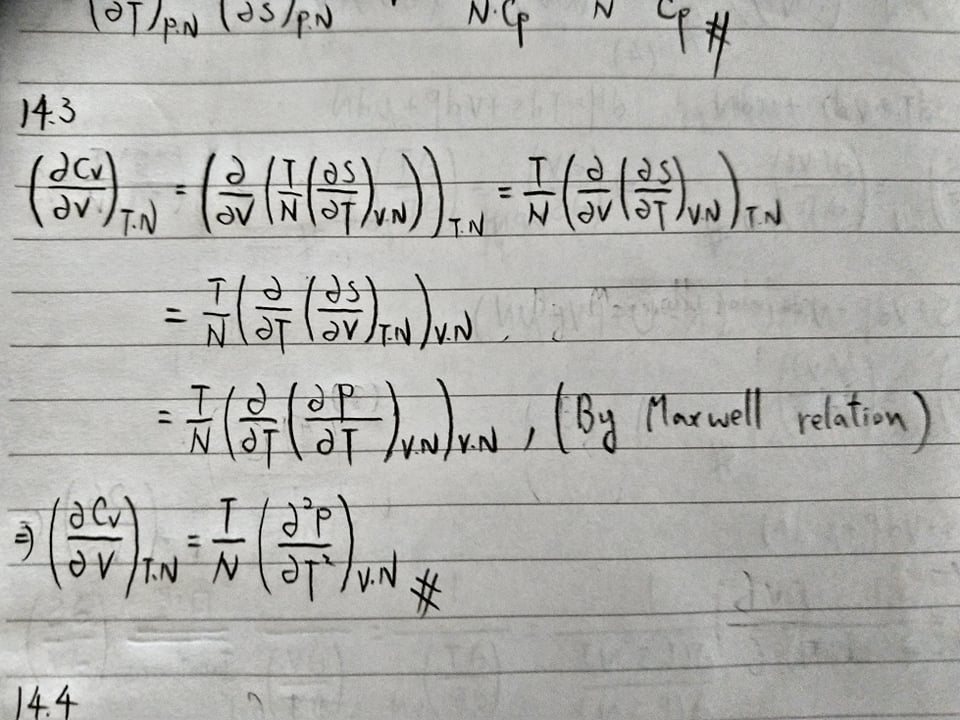 (∂T)P.N (∂S)P.N N·Cp N Cp #
14.3
(∂Cv/∂V)T.N = (∂/∂V (T/N (∂S/∂T)V.N))T.N = T/N (∂/∂V (∂S/∂T)V.N)T.N
= T/N (∂/∂T (∂S/∂V)T.N)V.N
= T/N (∂/∂T (∂P/∂T)V.N)V.N , (By Maxwell relation)
⇒ (∂Cv/∂V)T.N = T/N (∂²P/∂T²)V.N #
14.4